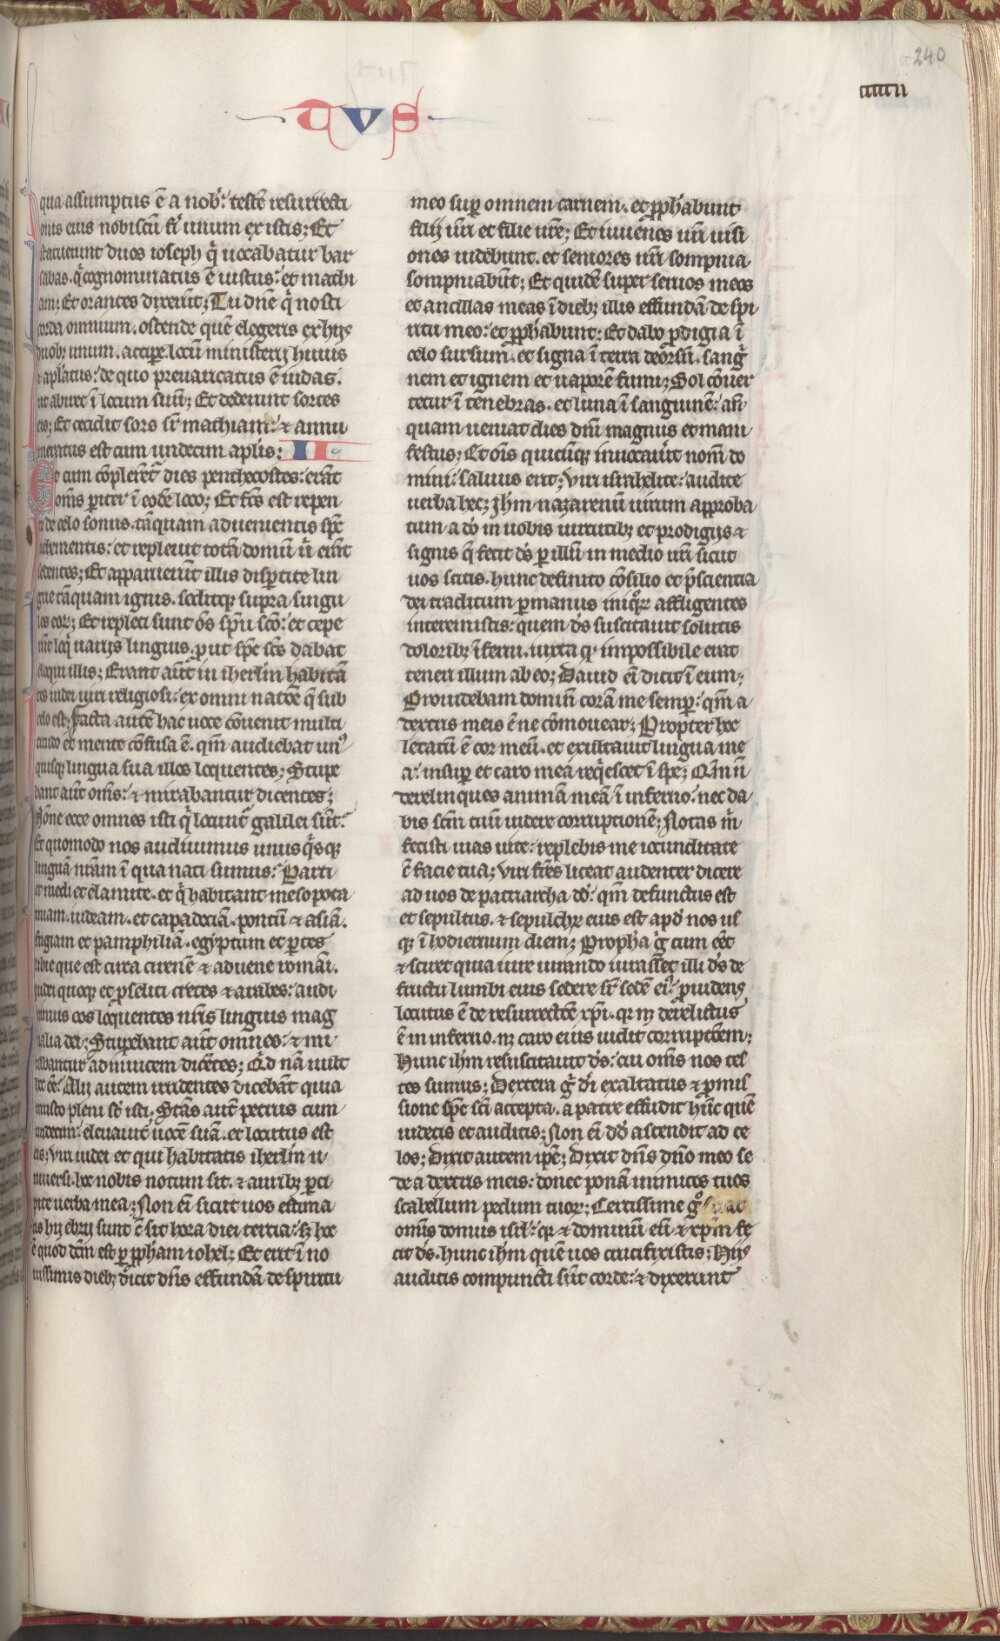 240
ccccii
TVS
qua assumptus ē a nob᷒: testē resurrecti
onis eius nobiscū fi̾ unum ex istis; Et
statuerunt duos ioseph q̄ uocabatur bar
sabas. q̄ cognominatus ē iustus: et mathi
am; Et orantes dixerūt; Tu dn̄e q̄ nosti
corda omnium. ostende quē elegeris ex hijs
duobȝ unum. accipe locū ministerij huius
⁊ aplatus: de quo preuaricatus ē iudas.
ut abiret ī locum suū; Et dederunt sortes
eis; Et cecidit sors sr̄ mathiam: ⁊ annu
meratus est cum undecim aplis; II
Et cum cōplerent᷑ dies penthecostes: erāt
om̄s pariter ī eodē loco; Et fc̄s est repen
te de celo sonus. tāquam aduenientis spc̄
uehementis: et repleuit totā domū u̾ erāt
sedentes; Et apparuerūt illis dispertite lin
gue tāquam ignis. seditqȝ supra singu
los eor̄; Et repleti sunt ōs spū scō: et cepe
rūt loq̄ uarijs linguis. prout spc̄ scs̄ dabat
eloqui illis; Erant aūt in iherlm̄ habitā
tes iudei uiri religiosi: ex omni natōe q̄ sub
celo est; Facta autē hac uoce cōuenit multi
tudo et mente cōfusa ē. qm̄ audiebat un᷒
quisqȝ lingua sua illos loquentes; Stupe
bant aūt om̄s: ⁊ mirabantur dicentes;
Nōne ecce omnes isti q̄ locunt᷑ galilei sūt:
Et quomodo nos audiuimus unusq̄sqȝ
linguā nr̄am ī qua nati sumus: Parti
et medi et elamite. et q̄ habitant mesopota
miam. iudeam. et capadociā. pontū ⁊ asiā.
frigiam et pamphiliā. egyptum et ꝑtes
libie que est circa cirenē ⁊ aduene romāi.
iudei quoqȝ et ꝓseliti cretes ⁊ arabes: audi
uimus eos loquentes nr̄is linguis mag
nalia dei; Stupebant aūt omnes: ⁊ mi
rabantur adinuicem dicētes; Qd̄ nā uult
hc̄ ee̾: Alij autem irridentes dicebāt quia
musto pleni st̄ isti. Stās aūt petrus cum
undecim: eleuauit uocē suā. et locutus est
eis; Viri iudei et qui habitatis iherlm̄ u
niuersi. hoc nobis notum sit. ⁊ auribȝ ꝑci
pite uerba mea; Non ei̅ sicut uos estima
tis hij ebrij sunt: ē sit hora diei tertia: sȝ hoc
ē quod dc̄m est ꝑ ꝓpham iohel; Et erit ī no
uissimis diebȝ dicit dn̄s effundā de spiritu
meo suꝑ omnem carnem. et ꝓphabunt
filij ur̄i et filie ur̄e; Et iuuenes ur̄i uisi
ones uidebunt. et seniores ur̄i sompnia
sompniabūt; Et quidē super seruos meos
et ancillas meas ī diebȝ illis effundā de spi
ritu meo: et ꝓphabunt; Et dabo ꝓdigia ī
celo sursum. et signa ī terra deorsū. sang̅
nem et ignem et uaporē fumi; Sol cōuer
tetur ī tenebras. et luna ī sanguinē: an̄
quam ueniat dies dn̄i magnus et mani
festus; Et om̄s quicūqȝ inuocauit̾ nom̄ do
mini: saluus erit; Viri isrlahelite: audite
uerba hec; ihm̄ nazarenū uirum approba
tum a dō in uobis uirtutibȝ et prodigijs ⁊
signis q̄ fecit dc̄s ꝑ illū in medio ur̄i sicut
uos scitis. hunc definito cōsilio et p̄scientia
dei traditum ꝑ manus iniqꝛ affligentes
interemistis: quem ds̄ suscitauit solutis
doloribȝ īferni. iuxta qđ impossibile erat
teneri illum ab eo; Dauid ei̅ dicit ī eum;
Prouidebam dominū corā me semꝑ: qm̄ a
dextris meis ē ne cōmouear; Propter hoc
letatū ē cor meū. et exultauit lingua me
a: insuꝑ et caro mea req̄escet ī spe; Qm̄ n̄
derelinques animā meā ī inferno: nec da
bis sc̄m tuū uidere corruptionē; Notas m̄
fecisti uias uite: replebis me iocunditate
cū facie tua; Viri frēs liceat audenter dicere
ad uos de patriarcha dd̄: qm̄ defunctus est
et sepultus. ⁊ sepulchꝝ eius est apđ nos us
qȝ ī hodiernum diem; Propha g̅ cum eēt
⁊ sciret quia iure iurando iurasset illi ds̄ de
fructu lumbi eius sedere sr̄ sedē ei᷒: prouidens
locutus ē de resurrectōe xp̄i. qr nȝ derelictus
ē in inferno. nȝ caro eius uidit corruptōem;
Hunc ihm̄ resuscitauit ds̄: cui om̄s nos tes
tes sumus; Dextera g̅ di̅ exaltatus ⁊ ꝓmis
sione spc̄ sc̄i accepta. a patre effudit hūc quē
uidetis et auditis; Non ei̅ dd̄ ascendit ad ce
los; Dixit autem ip̄e; Dixit dn̄s dn̄o meo se
de a dextris meis: donec ponā inimicos tuos
scabellum pedum tuoꝝ; Certissime g̅ sciat
om̄is domus isrl̄: qr ⁊ dominū eū ⁊ xp̄m fe
cit ds̄. hunc ihm̄ quē uos crucifixistis; Hijs
auditis compuncti sūt corde: ⁊ dixerunt